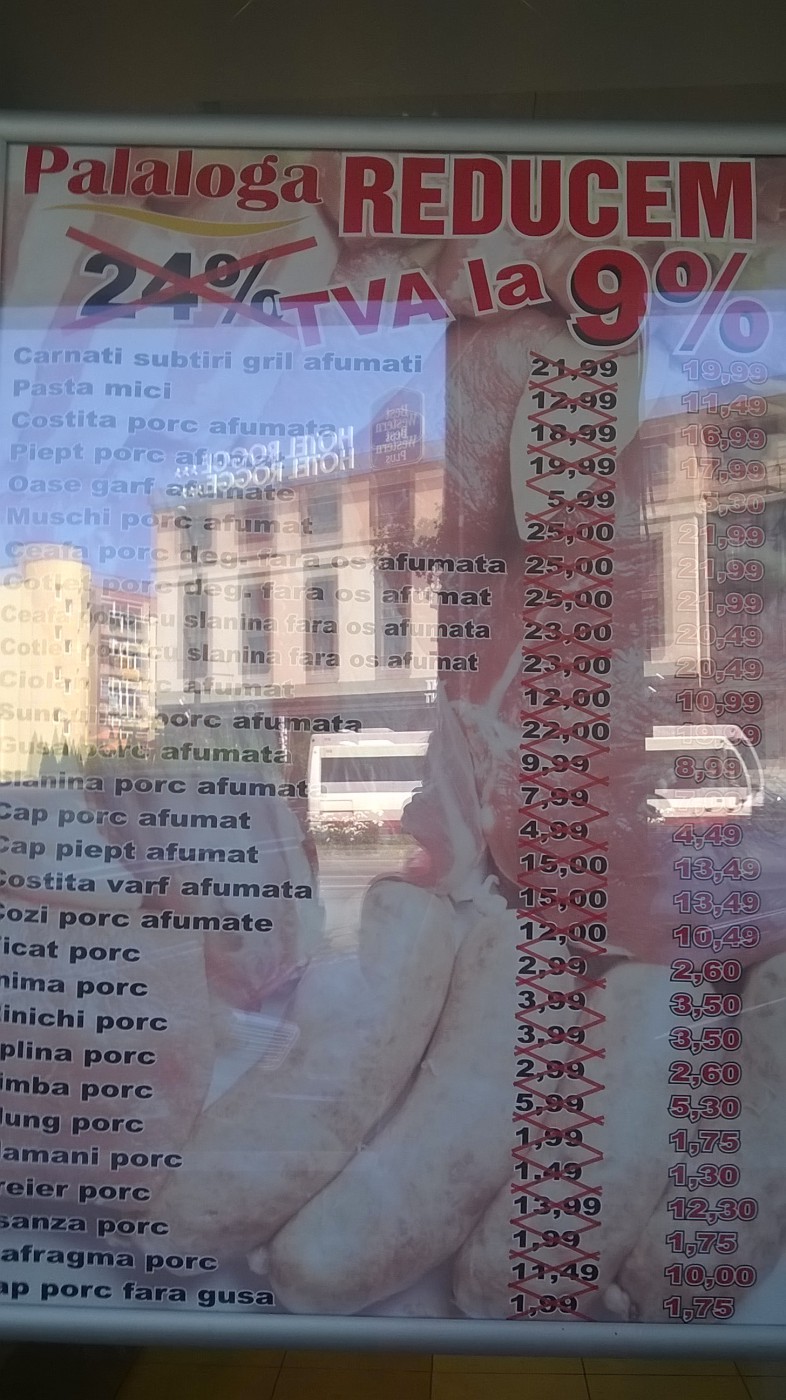 Palaloga REDUCEM
24% TVA la 9%
Carnati subtiri gril afumati 21,99 19,99
Pasta mici 12,99 11,49
Costita porc afumata 18,99 16,99
Piept porc 19,99 17,99
Oase garf afumate 5,99 5,30
Muschi porc afumat 25,00 21,99
Ceafa porc deg. fara os afumata 25,00 21,99
Cotlet porc deg. fara os afumat 25,00 21,99
Ceafa porc cu slanina fara os afumata 23,00 20,49
Cotlet porc cu slanina fara os afumat 23,00 20,49
porc afumat 12,00 10,99
porc afumata 22,00
Gusa porc afumata 9,99 8,99
Slanina porc afumat 7,99
Cap porc afumat 4,99 4,49
Cap piept afumat 15,00 13,49
Costita varf afumata 15,00 13,49
Cozi porc afumate 12,00 10,49
icat porc 2,99 2,60
nima porc 3,99 3,50
inichi porc 3,99 3,50
plina porc 2,99 2,60
imba porc 5,99 5,30
lung porc 1,99 1,75
amani porc 1,49 1,30
reier porc 13,99 12,30
sanza porc 1,99 1,75
afragma porc 11,49 10,00
ap porc fara gusa 1,99 1,75